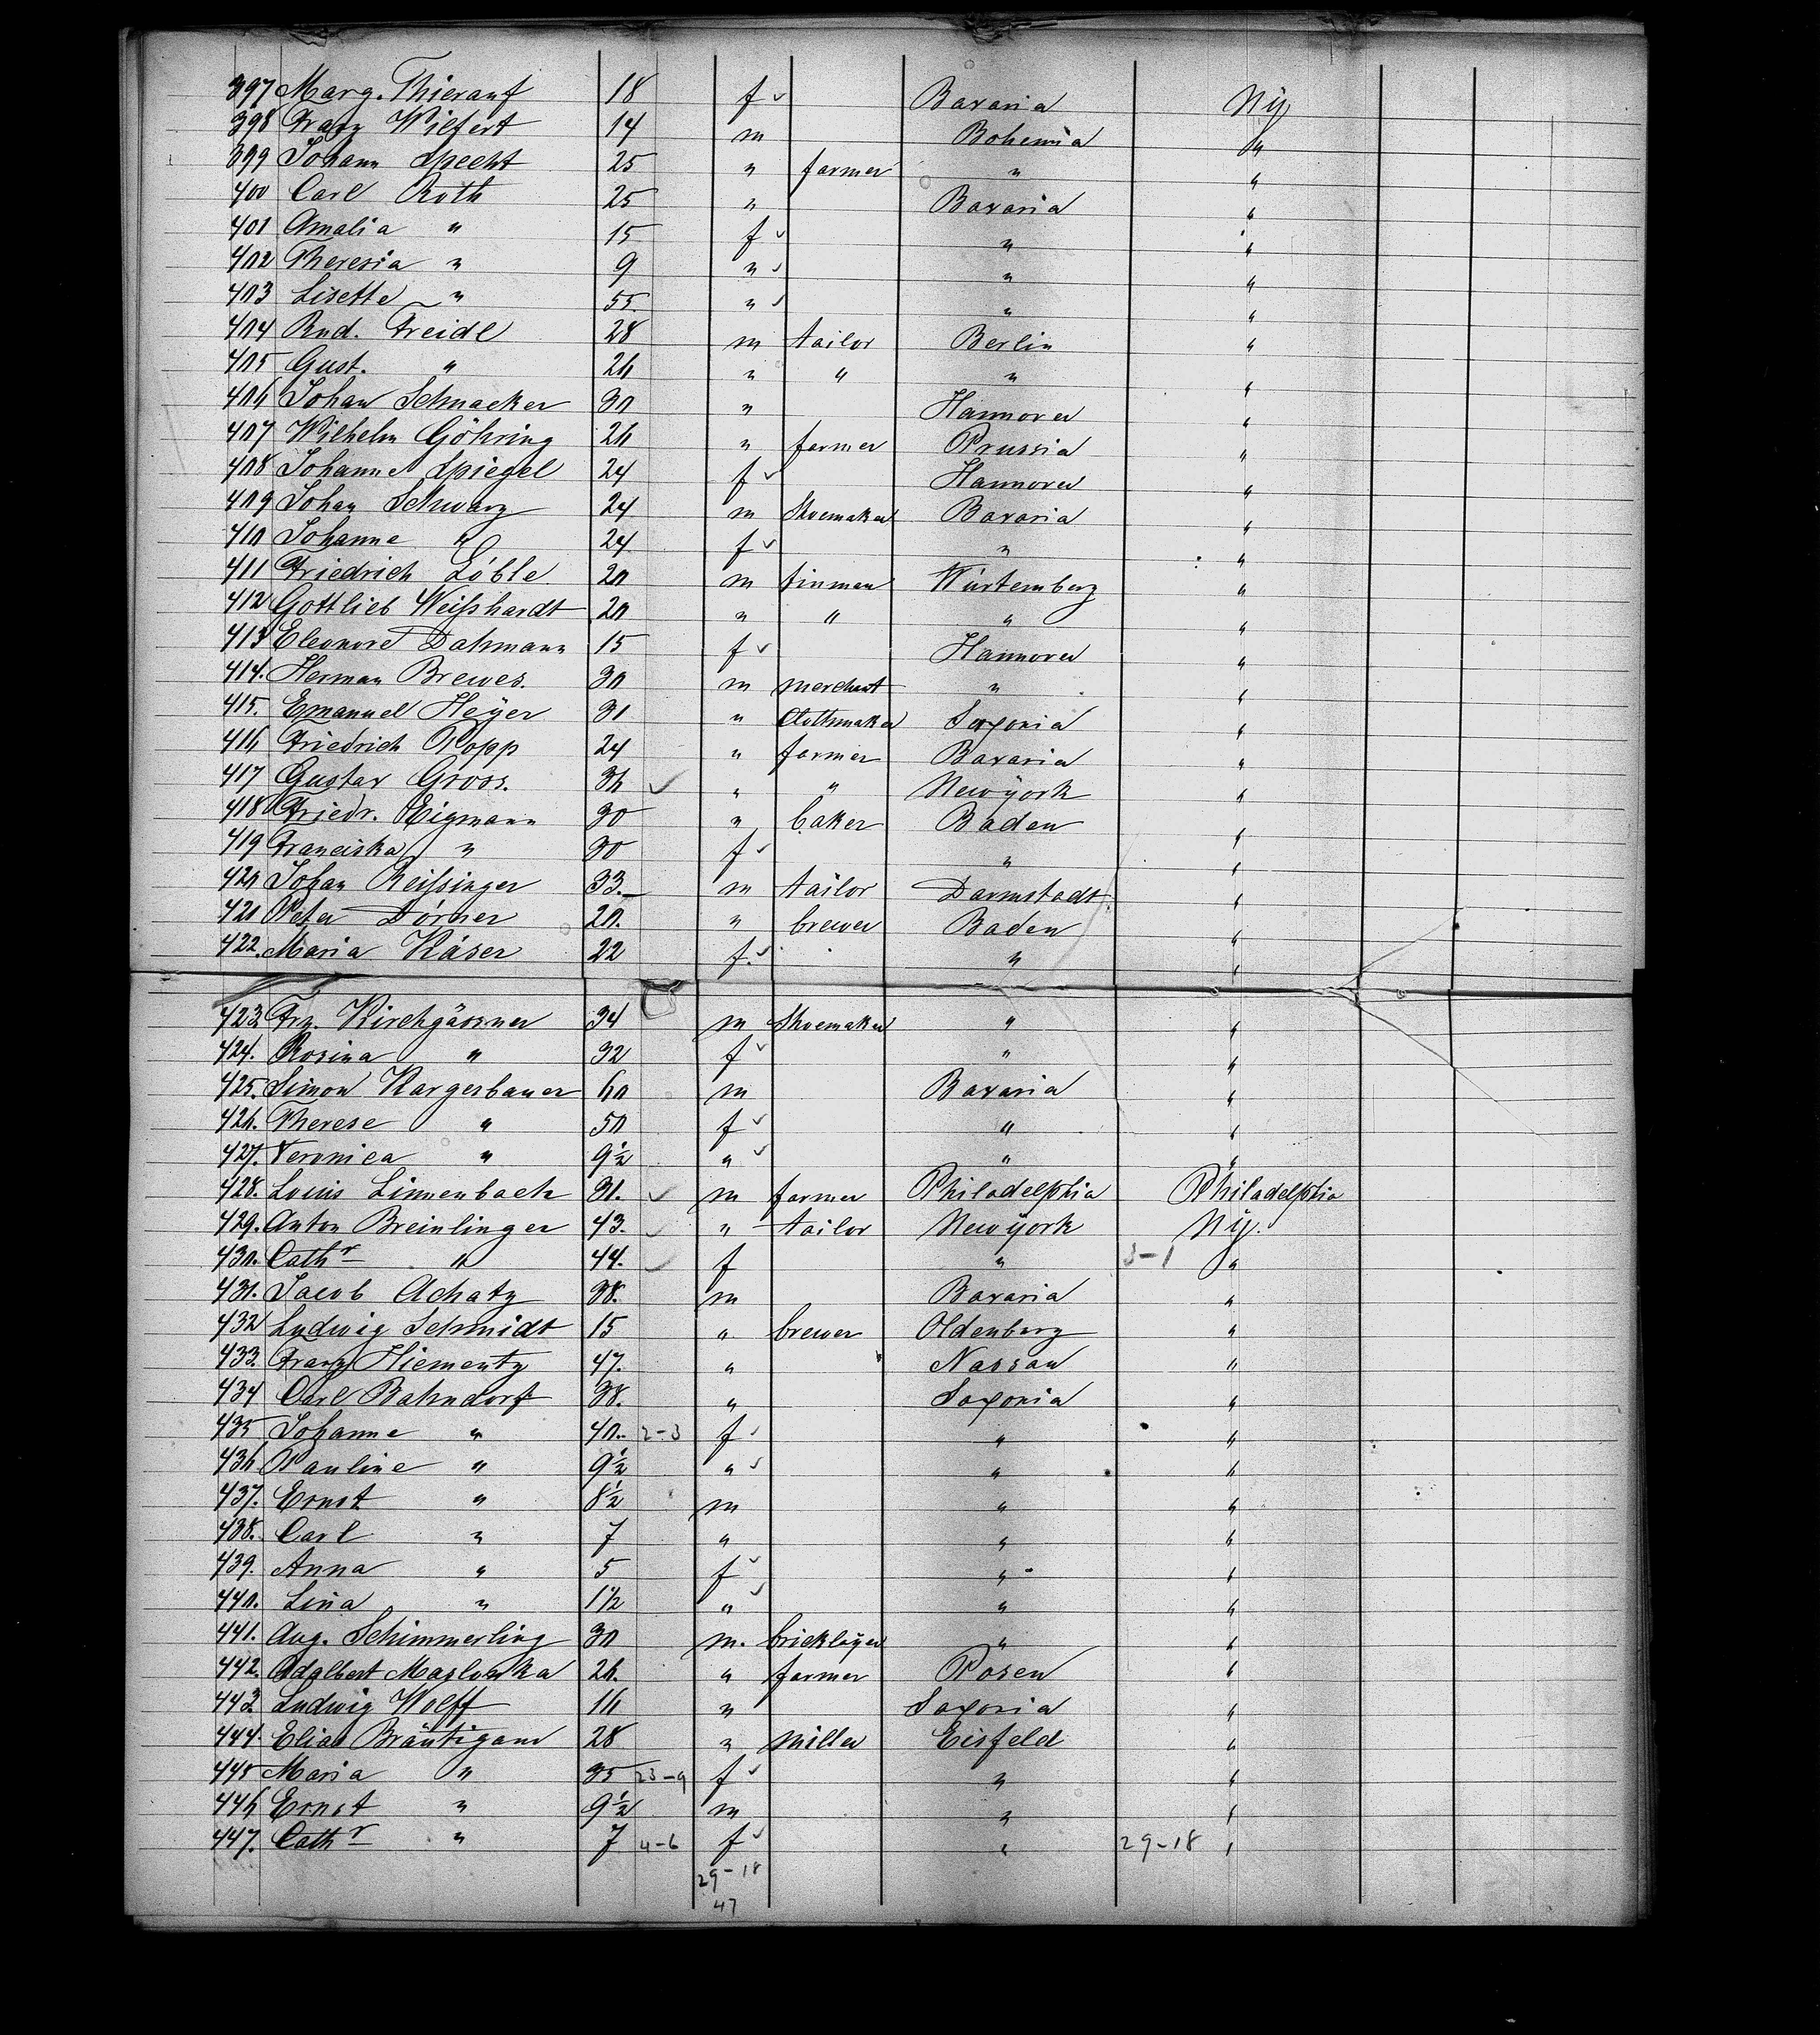 397 Marg. Thierauf 18 f Bavaria Ny
398 Franz Wilfert 14 m Bohemia "
399 Johann Specht 25 " farmer " "
400 Carl Roth 25 " Bavaria "
401 Amalia " 15 f " "
402 Theresia " 9 " " "
403 Lisette " 55 " " "
404 Rud. Freidl 28 m tailor Berlin "
405 Gust. " 26 " " " "
406 Johan Schnacker 30 " Hannover "
407 Wilhelm Göhring 26 " farmer Prussia "
408 Johanne Spiegel 24 f Hannover "
409 Johan Schwarz 24 m Shoemaker Bavaria "
410 Johanne " 24 f " "
411 Friedrich Löble 20 m tinman Würtemberg "
412 Gottlieb Weißhardt 20 " " " "
413 Eleonore Dahmann 15 f Hannover "
414. Herman Brewes. 30 m merchant " "
415. Emanuel Heÿer 31 " Clothmaker Saxonia "
416 Friedrich Popp 24 " farmer Bavaria "
417 Gustav Gross. 36 " " Newÿork "
418 Friedr. Eigmann 30 " baker Baden "
419 Franciska " 30 f " "
420 Johan Reißinger 33. m tailor Darmstadt "
421 Peter Dörner 20. " brewer Baden "
422. Maria Käser 22 f. " "
423. Frz. Kirchgässner 34 m Shoemaker " "
424. Rosina " 32 f " "
425. Simon Kargerbauer 60 m Bavaria "
426. Therese " 50 f " "
427. Veronica " 9½ " " "
428. Louis Linnenbach 31. m farmer Philadelphia Philadelphia
429. Anton Breinlinger 43. " tailor Newÿork Nÿ.
430. Cathr " 44. f " 3-1 "
431. Jacob Achatz 38. m Bavaria "
432 Ludwig Schmidt 15 " brewer Oldenburg "
433. Franz Hiementz 47. " Nassau "
434 Carl Bahndorf 38. " Saxonia "
435 Johanne " 40. 2-3 f " "
436 Pauline " 9½ " " "
437. Ernst " 8½ m " "
438. Carl " 7 " " "
439. Anna " 5 f " "
440. Lina " 1½ " " "
441. Aug. Schimmerling 30 m. bricklaÿer " "
442. Adalbert Maslonka 26. " farmer Posen "
443. Ludwig Wolff 16 " Saxonia "
444. Elias Bräutigam 28 " miller Eisfeld "
445 Maria " 35 23-9 f " "
446 Ernst " 9½ m " "
447. Cathr " 7 4-6 f " 29-18 "
29-18
47